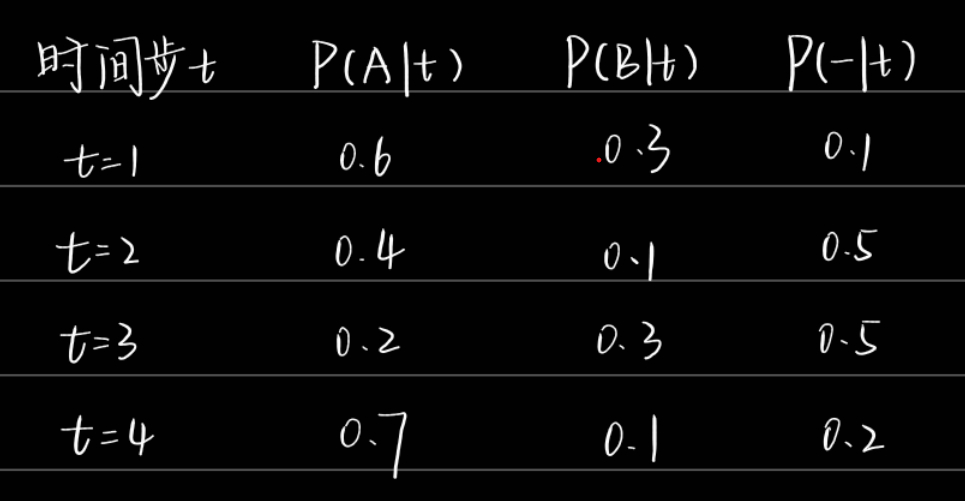 时间步t P(A|t) P(B|t) P(-|t)
t=1 0.6 0.3 0.1
t=2 0.4 0.1 0.5
t=3 0.2 0.3 0.5
t=4 0.7 0.1 0.2